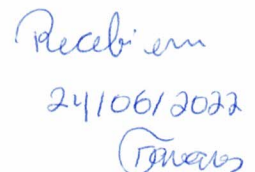 Recebi em
24/06/2022